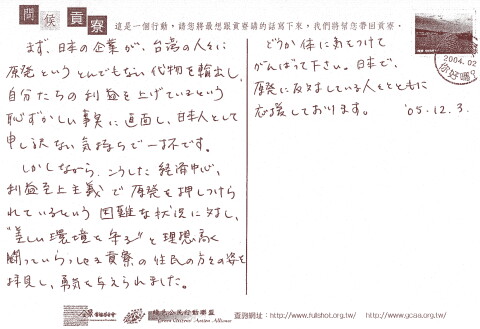 問候貢寮
這是一個行動,請您將最想跟貢寮講的話寫下來,我們將幫您帶回貢寮。
まず、日本の企業が、台湾の人々に
原発というとんでもない代物を輸出し、
自分たちの利益を上げているという
恥ずかしい事実に直面し、日本人として
申し訳ない気持ちで一杯です。
しかしながら、こうした経済中心、
利益至上主義で原発を押しつけら
れているという困難な状況に対し、
"美しい環境を守る"と理想高く
闘っていらっしゃる貢寮の住民の方々の姿を
拝見し、勇気を与えられました。
どうか体に気をつけて
がんばって下さい。日本で、
原発に反対している人々とともに
応援しております。 '05.12.3.
2004.02
你好嗎?
綠色公民行動聯盟
Green Citizens' Action Alliance
查詢網址:http://www.fullshot.org.tw/ http://www.gcaa.org.tw/